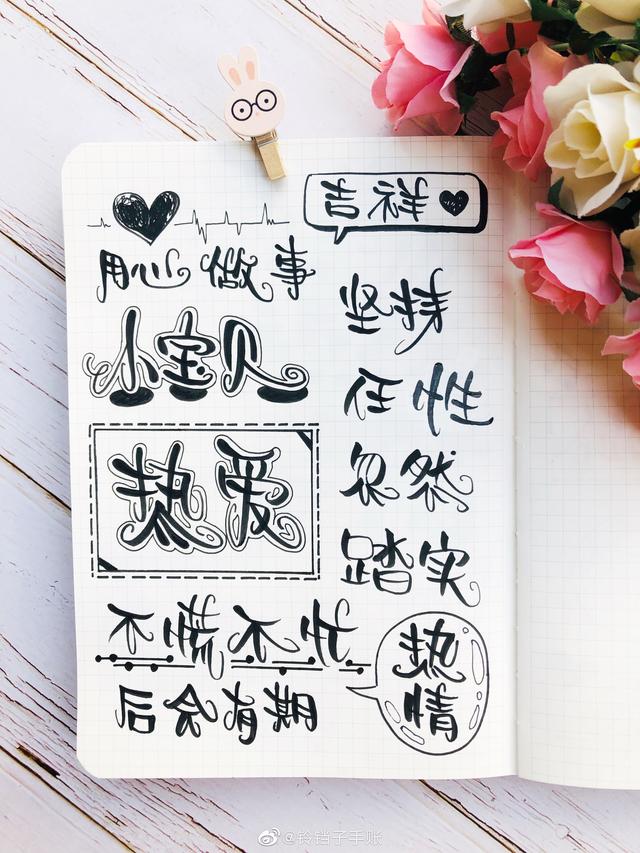 用心做事
小宝贝
热爱
不慌不忙
后会有期
吉祥
坚持
任性
忽然
踏实
热情
@铃铛子手账